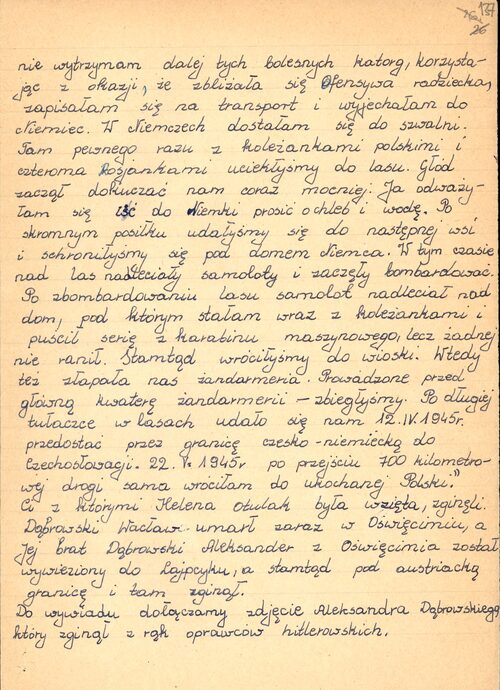 137
26
nie wytrzymam dalej tych bolesnych katorg, korzysta-
jąc z okazji, że zbliżała się Ofensywa radziecka,
zapisałam się na transport i wyjechałam do
Niemiec. W Niemczech dostałam się do szwalni.
Tam pewnego razu z koleżankami polskimi i
czteroma Rosjankami uciekłyśmy do lasu. Głód
zaczął dokuczać nam coraz mocniej. Ja odważy-
łam się iść do Niemki prosić o chleb i wodę. Po
skromnym posiłku udałyśmy się do następnej wsi
i schroniłyśmy się pod domem Niemca. W tym czasie
nad las nadleciały samoloty i zaczęły bombardować.
Po zbombardowaniu lasu samolot nadleciał nad
dom, pod którym stałam wraz z koleżankami i
puścił serię z karabinu maszynowego, lecz żadnej
nie ranił. Stamtąd wróciłyśmy do wioski. Wtedy
też złapała nas żandarmeria. Prowadzone przed
główną kwaterę żandarmerii – zbiegłyśmy. Po długiej
tułaczce w lasach udało się nam 12.IV.1945r.
przedostać przez granicę czesko-niemiecką do
Czechosłowacji. 22.V.1945r po przejściu 700 kilometro-
wej drogi sama wróciłam do ukochanej Polski."
Ci z którymi Helena Otulak była wzięta, zginęli.
Dąbrowski Wacław umarł zaraz w Oświęcimiu, a
Jej brat Dąbrowski Aleksander z Oświęcimia został
wywieziony do Lajpcyku, a stamtąd pod austriacką
granicę i tam zginął.
Do wywiadu dołączamy zdjęcie Aleksandra Dąbrowskiego,
który zginął z rąk oprawców hitlerowskich.